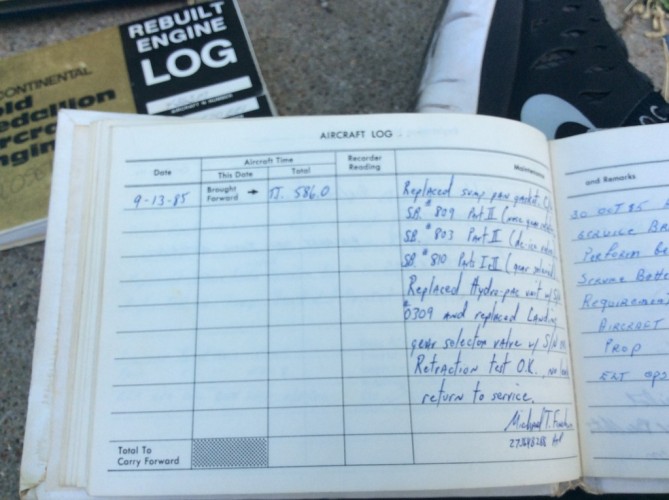 REBUILT
ENGINE
LOG
AIRCRAFT N NUMBER
CONTINENTAL
AIRCRAFT LOG
Date
Aircraft Time
This Date
Total
Recorder
Reading
9-13-85
Brought
Forward
TT. 586.0
Replaced sump pan gasket.
S.B. # 809 Part II (nose gear
S.B. # 803 Part II (de-ice
S.B. # 810 Parts I-II (gear
Replaced Hydro-pac unit w/ S/N
#0309 and replaced Landing
gear selector valve w/ S/N
Retraction test O.K.
return to service.
Michael T.
Total To
Carry Forward
and Remarks
30 OCT 85
SERVICE
Perform
Service
Requirement
AIRCRAFT
PROP
ELT OPS